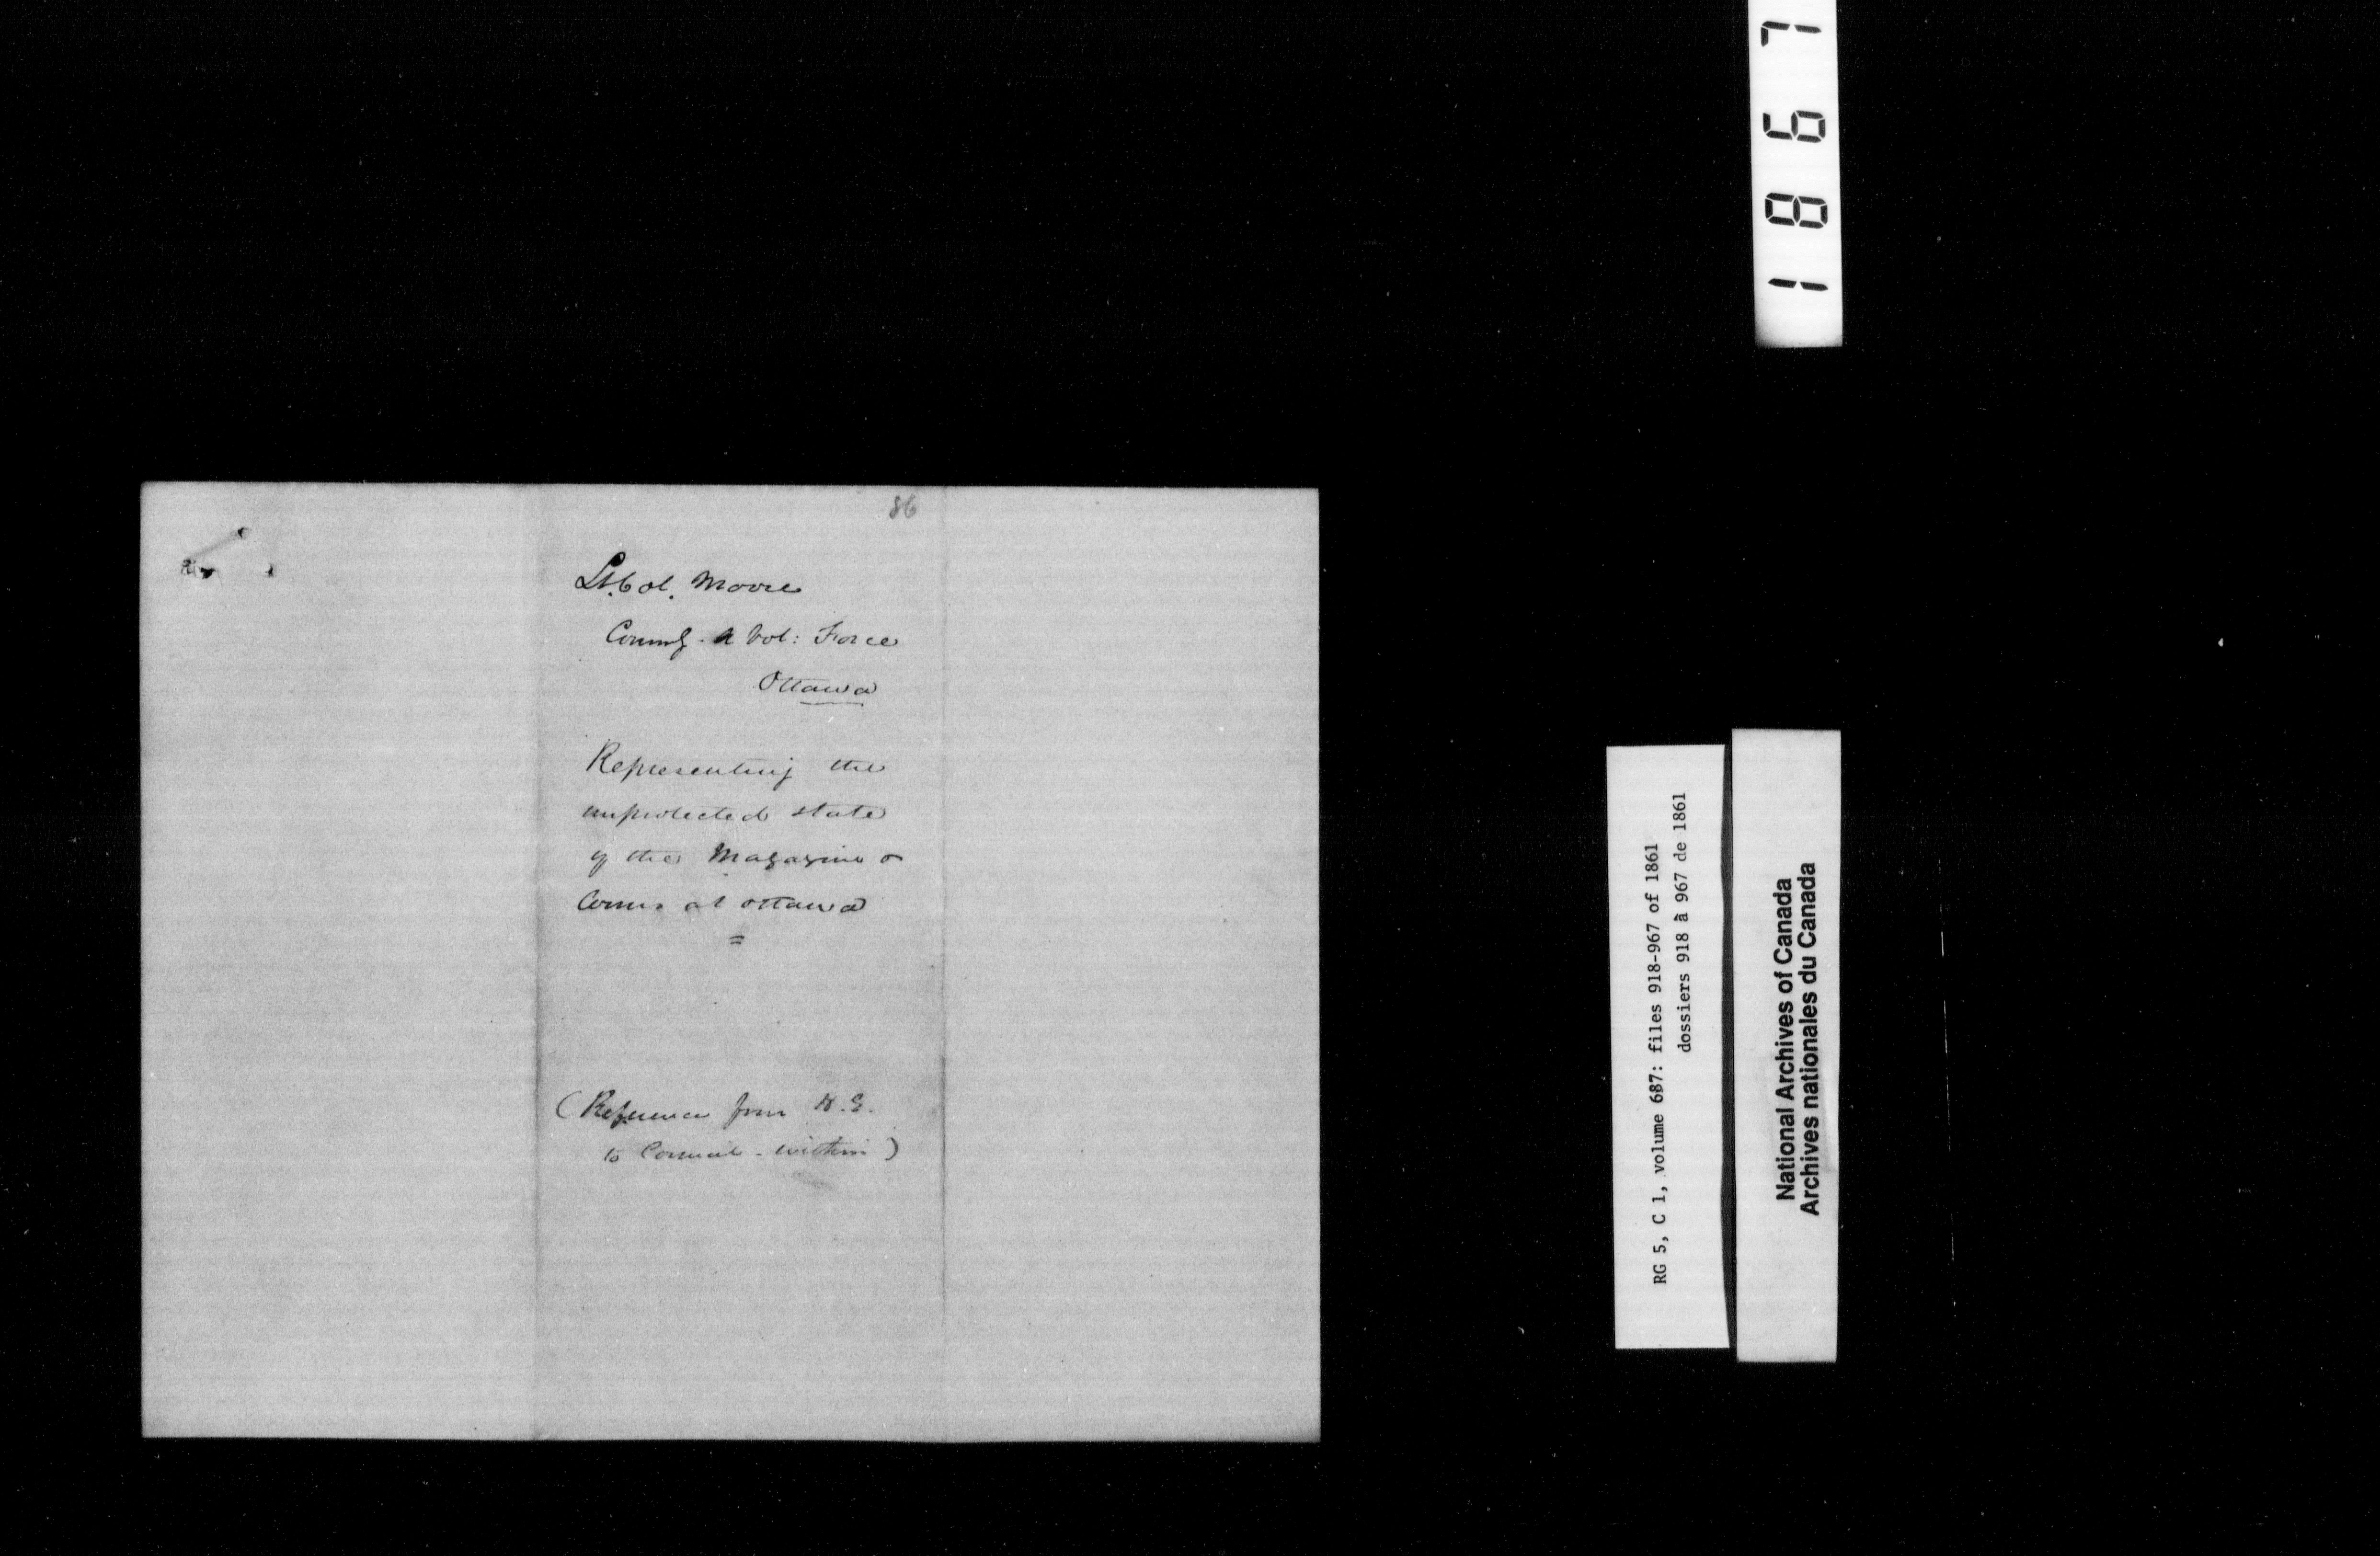 86
Lt. Col. Moore
Commg. Vol: Force
Ottawa
Representing the
unprotected state
of the Magazine &
at Ottawa
(Reference from
to Council - within)
1867
RG 5, C 1, volume 687: files 918-967 of 1861
dossiers 918 à 967 de 1861
National Archives of Canada
Archives nationales du Canada